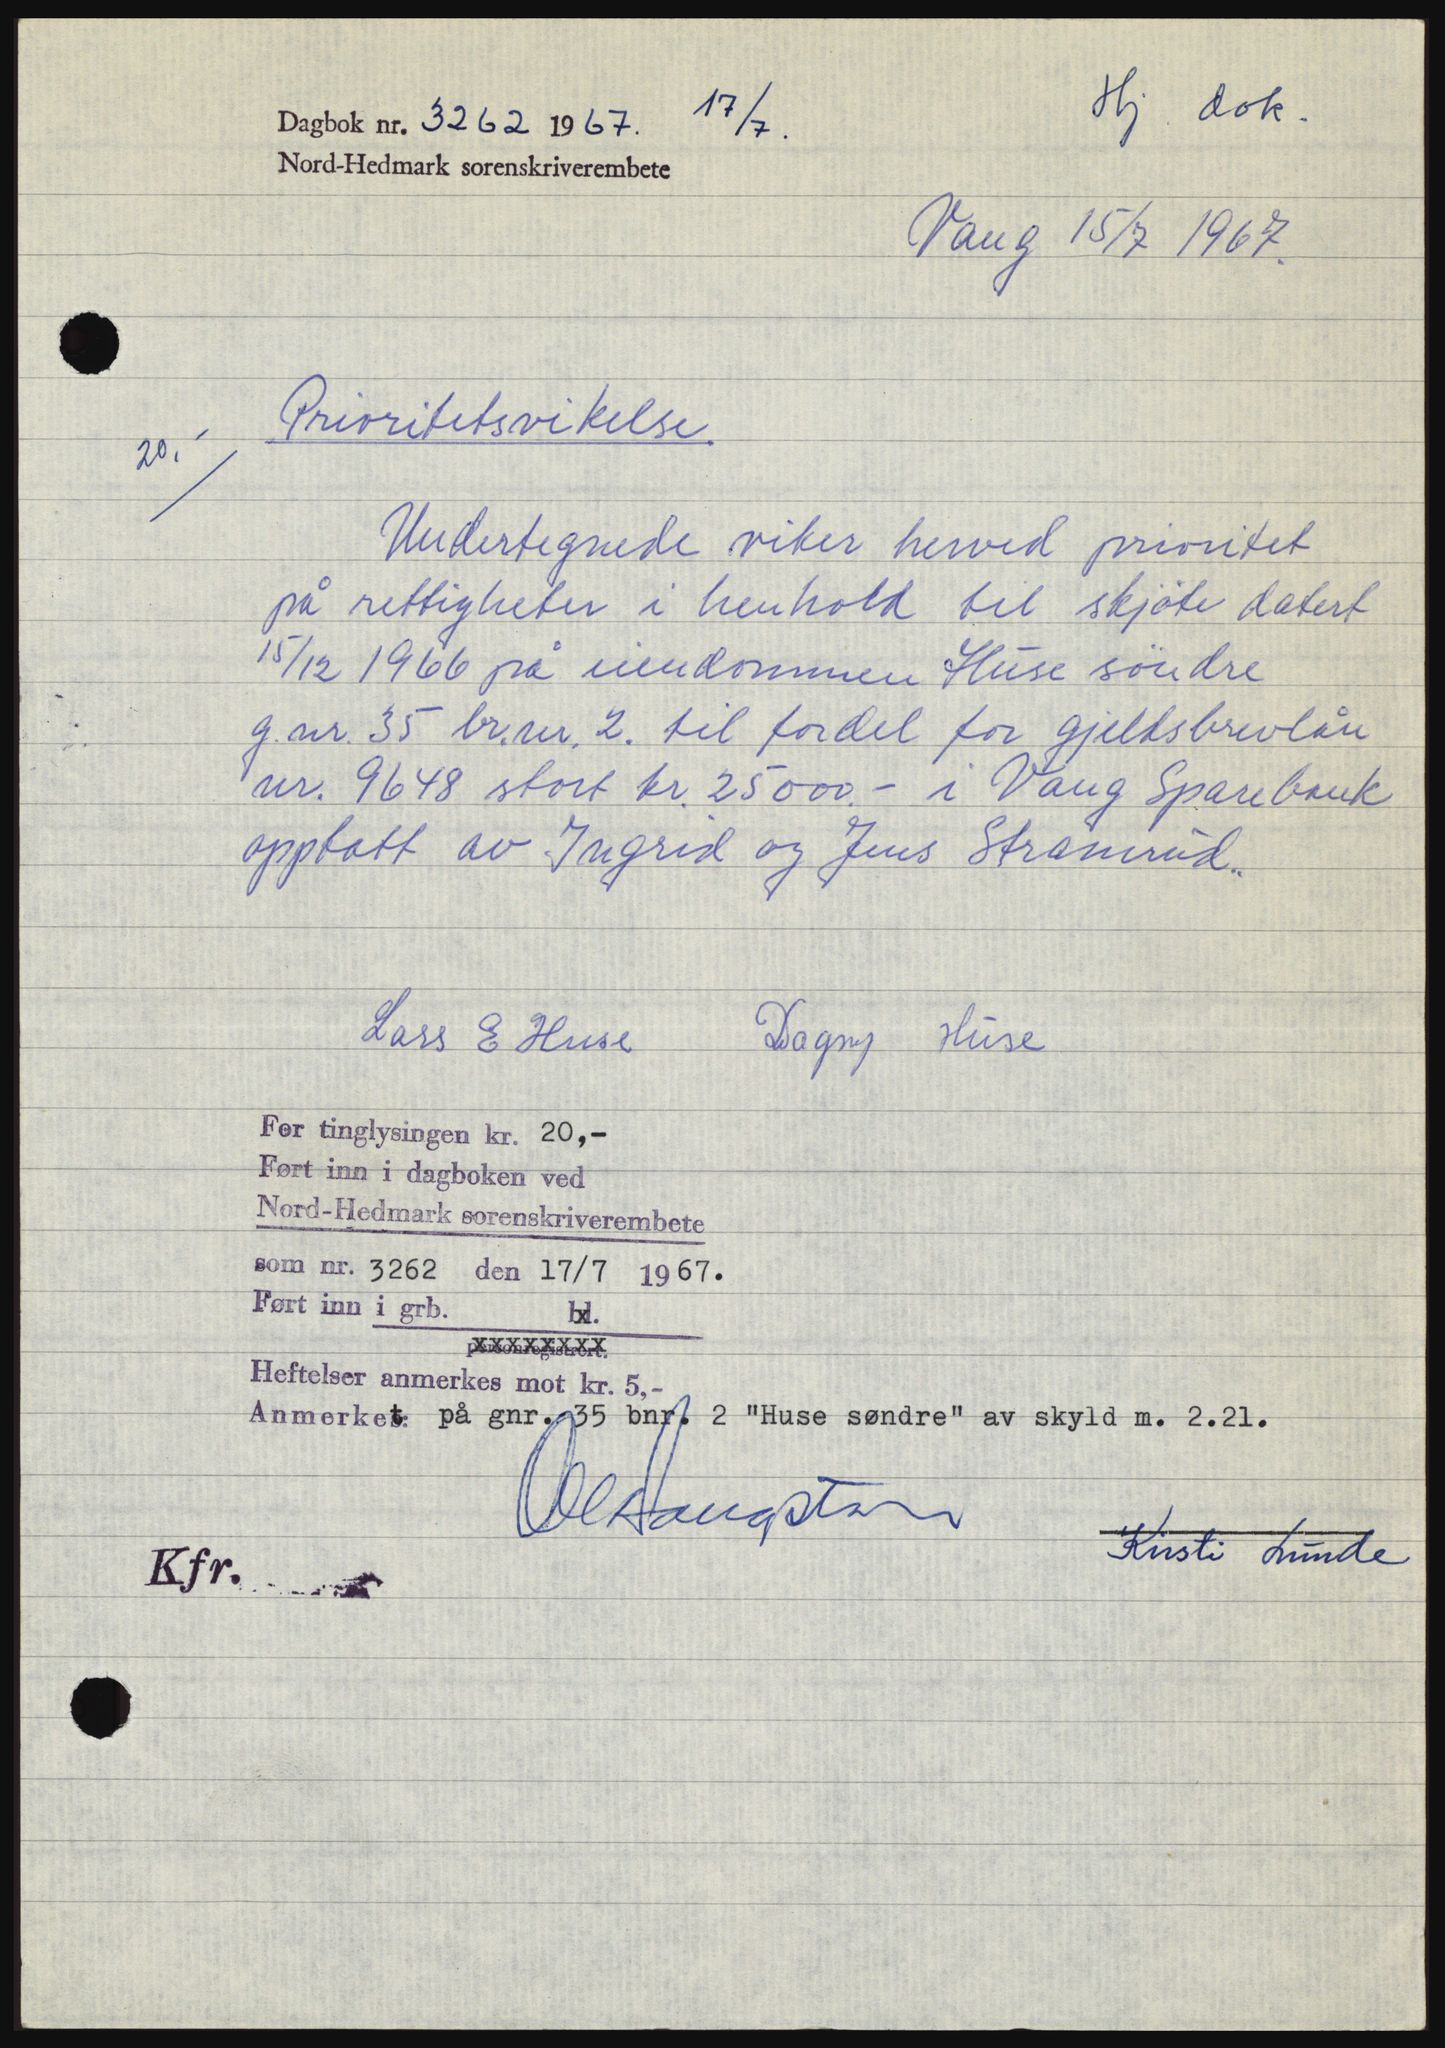 Hj. dok.
Dagbok nr. 3262 1967. 17/7.
Nord-Hedmark sorenskriverembete
Vang 15/7 1967.
Prioritetsvikelse.
20,-
Undertegnede viker herved prioritet
på rettigheter i henhold til skjöte datert
15/12 1966 på eiendommen Huse söndre
g.nr. 35 br.nr. 2. til fordel for gjeldsbrevlån
nr. 9648 stort kr. 25000.- i Vang Sparebank
opptatt av Ingrid og Jens Stramrud.
Lars E Huse Dagny Huse
For tinglysingen kr. 20,-
Ført inn i dagboken ved
Nord-Hedmark sorenskriverembete
som nr. 3262 den 17/7 1967.
Ført inn i grb. bd.
personregistrert.
Heftelser anmerkes mot kr. 5,-
Anmerket: på gnr. 35 bnr. 2 "Huse søndre" av skyld m. 2.21.
Kirsti Lunde
Kfr.